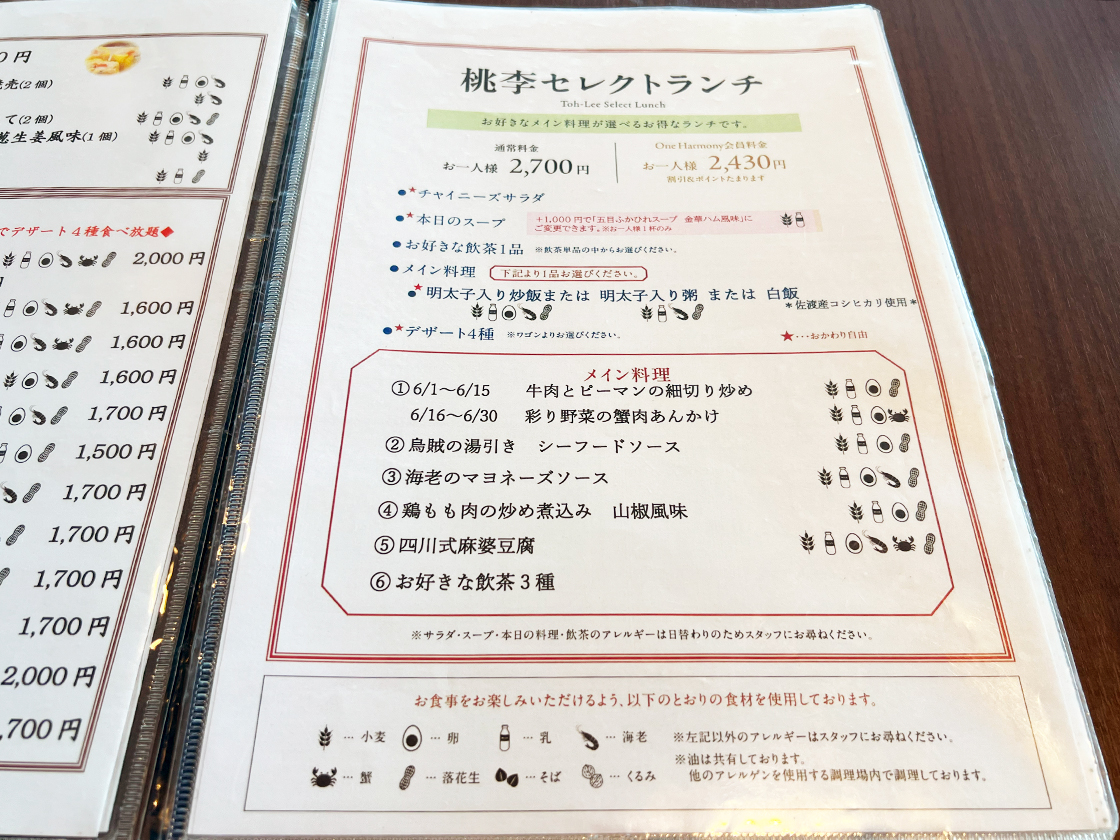 0円
売(2個)
て(2個)
葱生姜風味(1個)
でデザート4種食べ放題◆
2,000円
円
1,600円
1,600円
1,600円
1,700円
1,500円
1,700円
1,700円
1,700円
1,700円
2,000円
,700円
桃李セレクトランチ
Toh-Lee Select Lunch
お好きなメイン料理が選べるお得なランチです。
通常料金
お一人様 2,700円
One Harmony会員料金
お一人様 2,430円
割引&ポイントたまります
●★チャイニーズサラダ
●★本日のスープ
+1,000円で「五目ふかひれスープ 金華ハム風味」に
ご変更できます。※お一人様1杯のみ
●お好きな飲茶1品 ※飲茶単品の中からお選びください。
●メイン料理 下記より1品お選びください。
●★明太子入り炒飯または 明太子入り粥 または 白飯
＊佐渡産コシヒカリ使用＊
●★デザート4種 ※ワゴンよりお選びください。
★…おかわり自由
メイン料理
①6/1～6/15 牛肉とピーマンの細切り炒め
6/16～6/30 彩り野菜の蟹肉あんかけ
②烏賊の湯引き シーフードソース
③海老のマヨネーズソース
④鶏もも肉の炒め煮込み 山椒風味
⑤四川式麻婆豆腐
⑥お好きな飲茶3種
※サラダ・スープ・本日の料理・飲茶のアレルギーは日替わりのためスタッフにお尋ねください。
お食事をお楽しみいただけるよう、以下のとおりの食材を使用しております。
…小麦 …卵 …乳 …海老
※左記以外のアレルギーはスタッフにお尋ねください。
…蟹 …落花生 …そば …くるみ
※油は共有しております。
他のアレルゲンを使用する調理場内で調理しております。